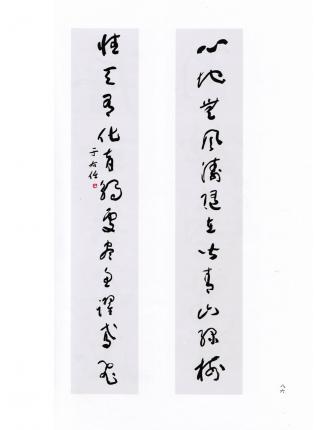 心地無風濤隨在皆青山綠樹
性天有化育觸處盡魚躍鳶飛
于右任
八六